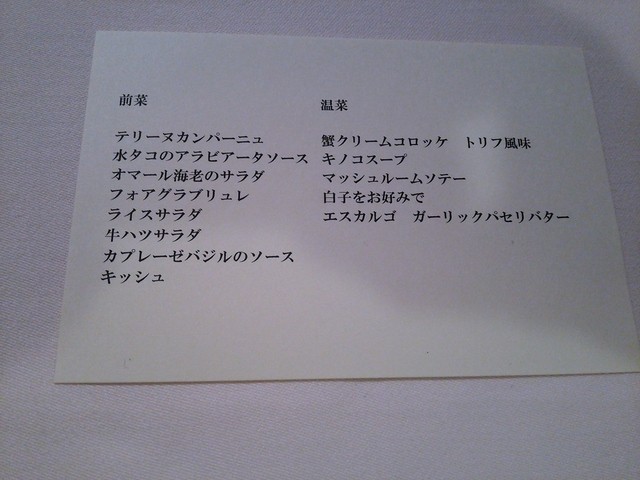 前菜
テリーヌカンパーニュ
水タコのアラビアータソース
オマール海老のサラダ
フォアグラブリュレ
ライスサラダ
牛ハツサラダ
カプレーゼバジルのソース
キッシュ
温菜
蟹クリームコロッケ　トリフ風味
キノコスープ
マッシュルームソテー
白子をお好みで
エスカルゴ　ガーリックパセリバター